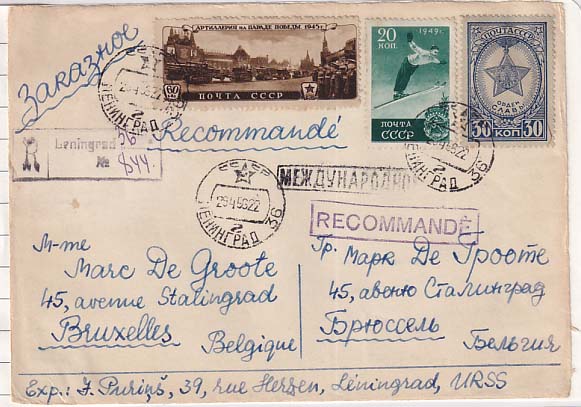 Заказное
АРТИЛЛЕРИЯ НА ПАРАДЕ ПОБЕДЫ. 1945 г.
60
ПОЧТА СССР
20 КОП.
1949 г.
ПОЧТА СССР
ПОЧТА СССР
ОРДЕН СЛАВЫ
30 КОП 30
ЛЕНИНГРАД
2
Recommandé
R Leningrad 36
№ 844.
СССР
29.4.56.22
ЛЕНИНГРАД 36
2
МЕЖДУНАРОДНОЕ
RECOMMANDÉ
ЛЕНИНГРАД 36
2
M-me
Marc De Groote
45, avenue Stalingrad
Bruxelles
Belgique
Гр. Марк Де Грооте
45, авеню Сталинград
Брюссель
Бельгия
Exp.: J. Puriņš, 39, rue Herzen, Léningrad, URSS